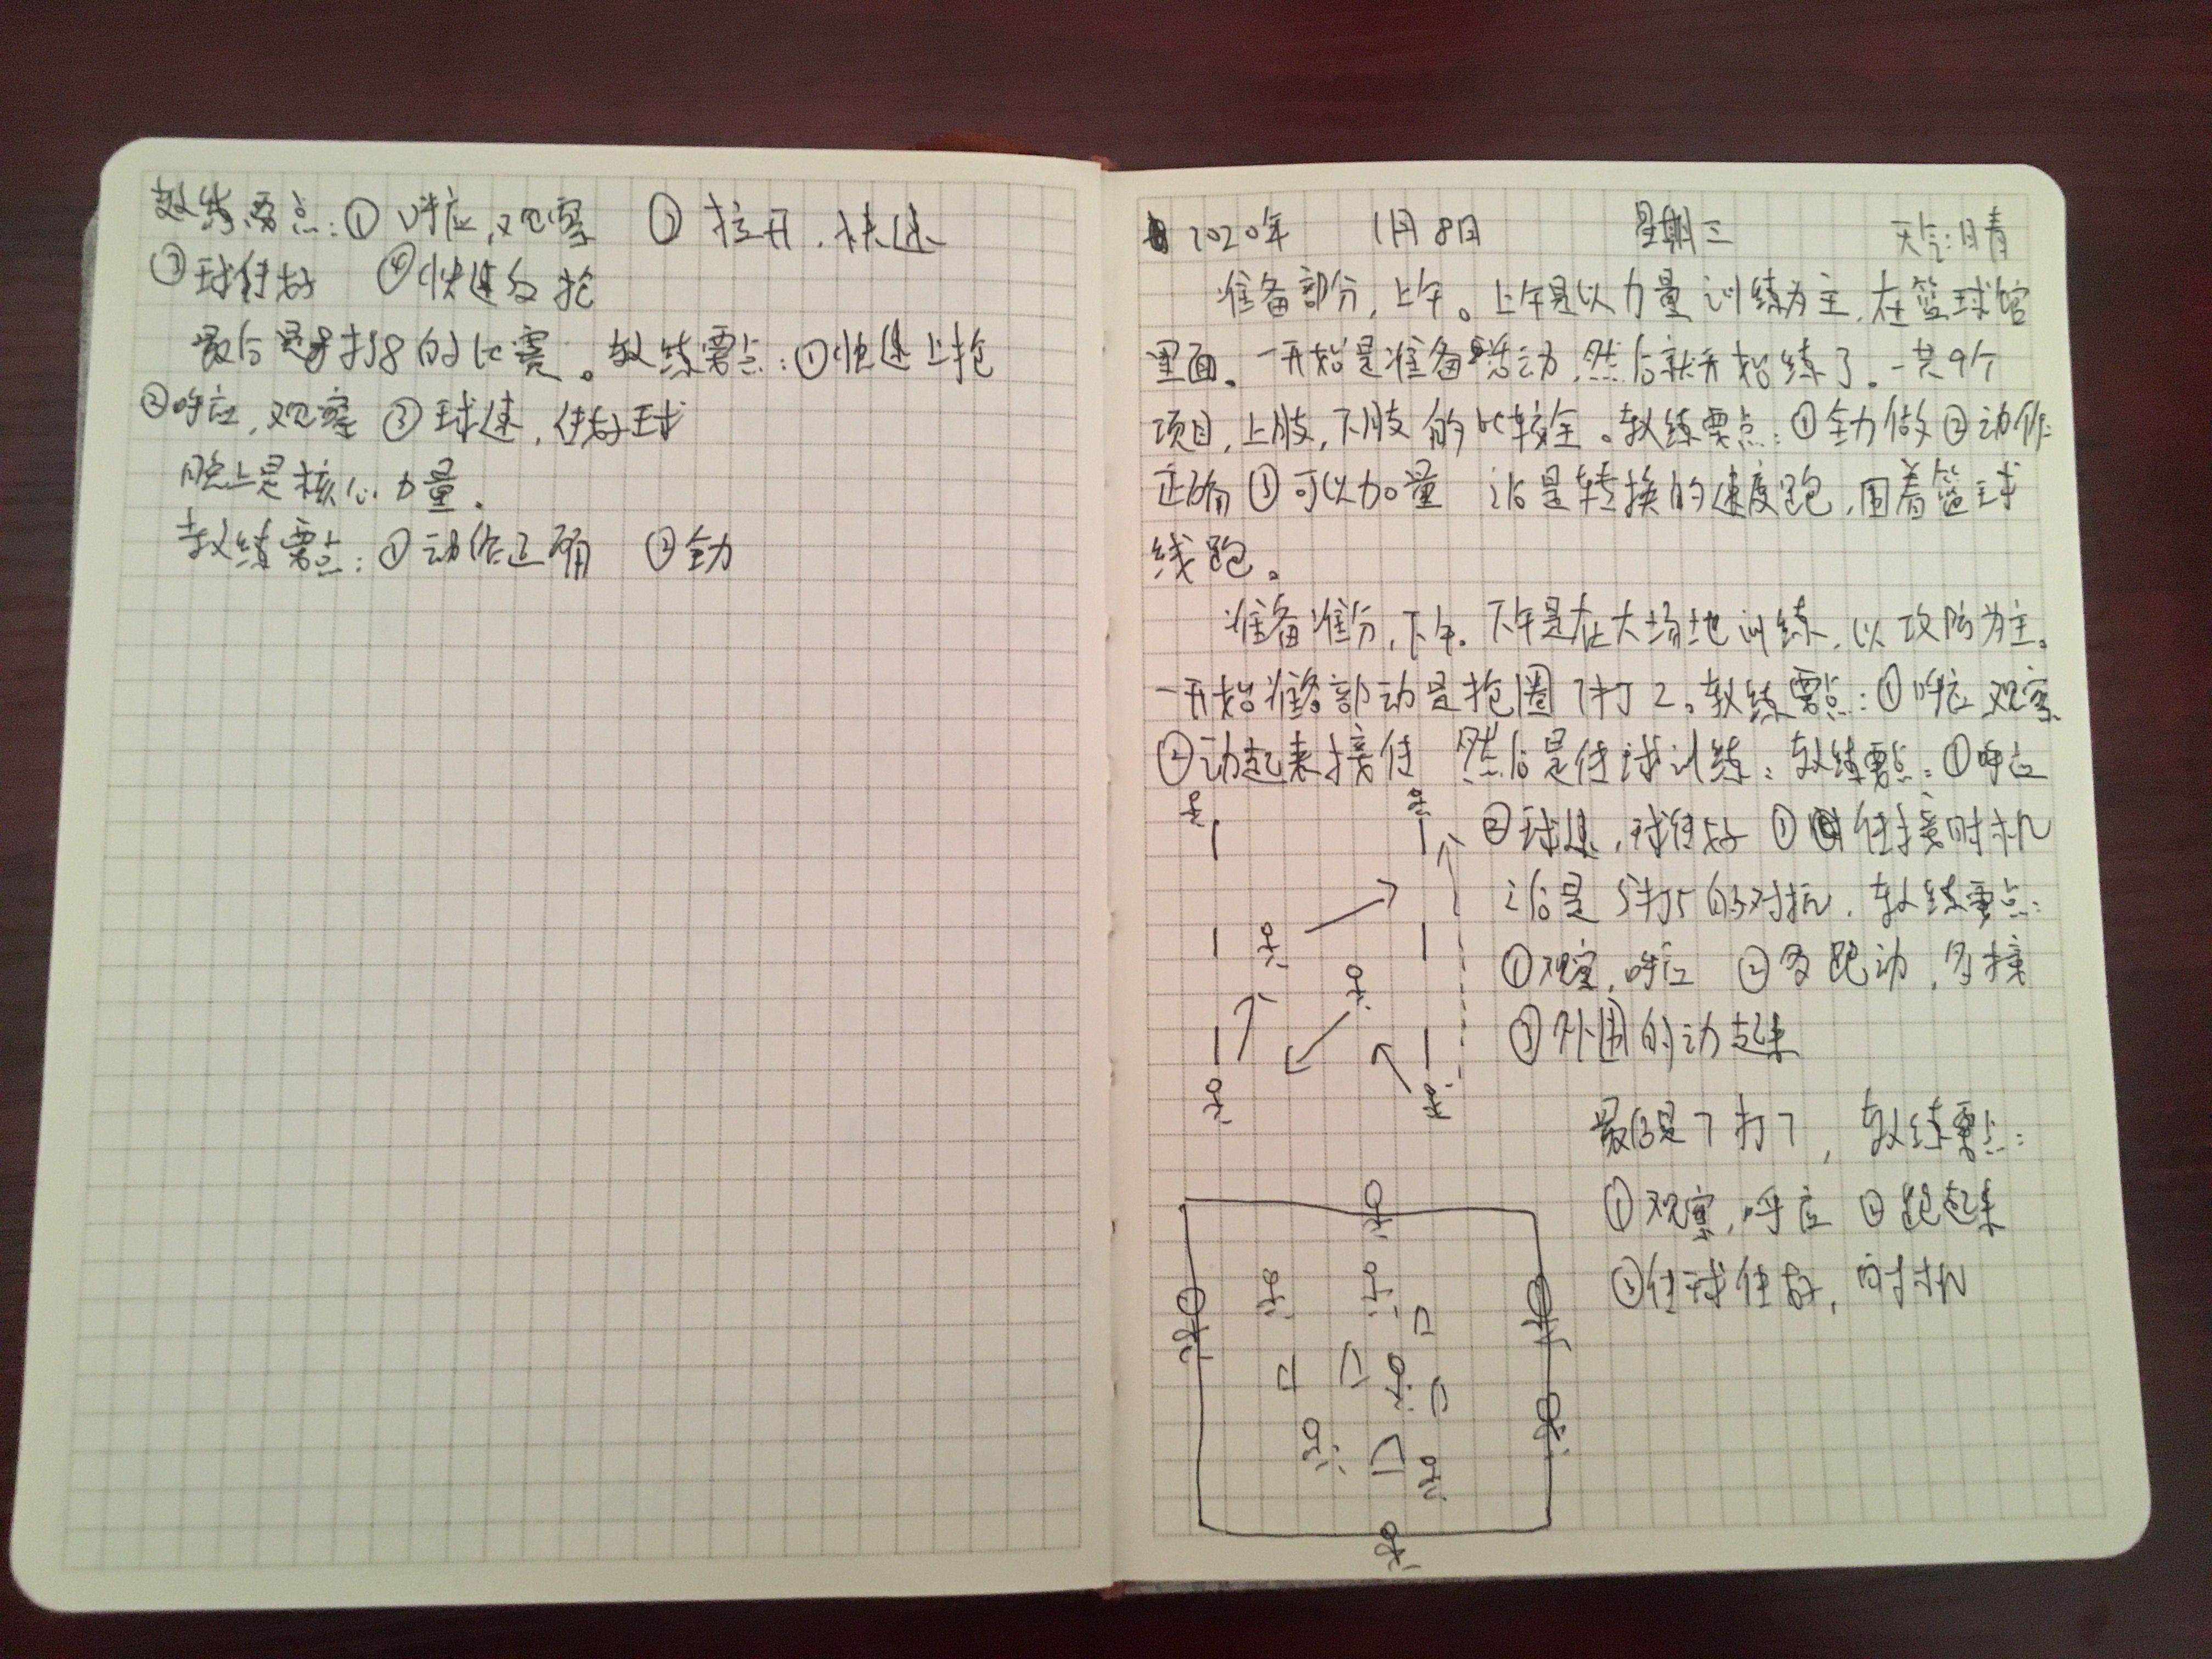 教练要点：① 呼应，观察 ② 拉开，快速
③ 球传好 ④ 快速反抢
最后是8打8的比赛。教练要点：①快速上抢
②呼应，观察 ③ 球速，传好球
晚上是核心力量。
教练要点：① 动作正确 ② 全力
2020年 1月8日 星期三 天气：晴
准备部分，上午。上午是以力量训练为主，在篮球馆
里面。一开始是准备活动，然后就开始练了。一共9个
项目，上肢，下肢的比较全。教练要点：①全力做 ②动作
正确 ③可以加量 之后是转换的速度跑，围着篮球
线跑。
准备准分，下午。下午是在大场地训练，以攻防为主。
一开始准备部动是抢圈7打2。教练要点：①呼应 观察
②动起来接传 然后是传球训练：教练要点：①呼应
②球速，球传好 ③ 传接时机
之后是5打5的对抗，教练要点：
①观察，呼应 ②多跑动，多接
③外围的动起来
最后是7打7，教练要点：
①观察，呼应 ②跑起来
③传球传好，时机